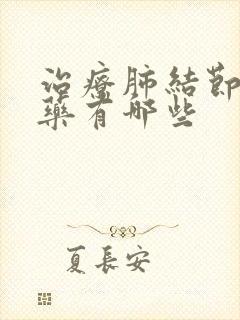 治療肺結節
藥有哪些
夏長安